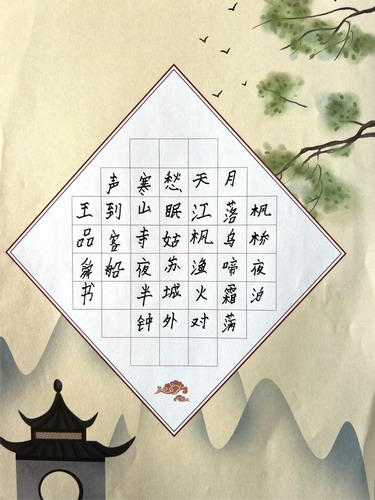 枫桥夜泊
月落乌啼霜满
天江枫渔火对
愁眠姑苏城外
寒山寺夜半钟
声到客船
王品书